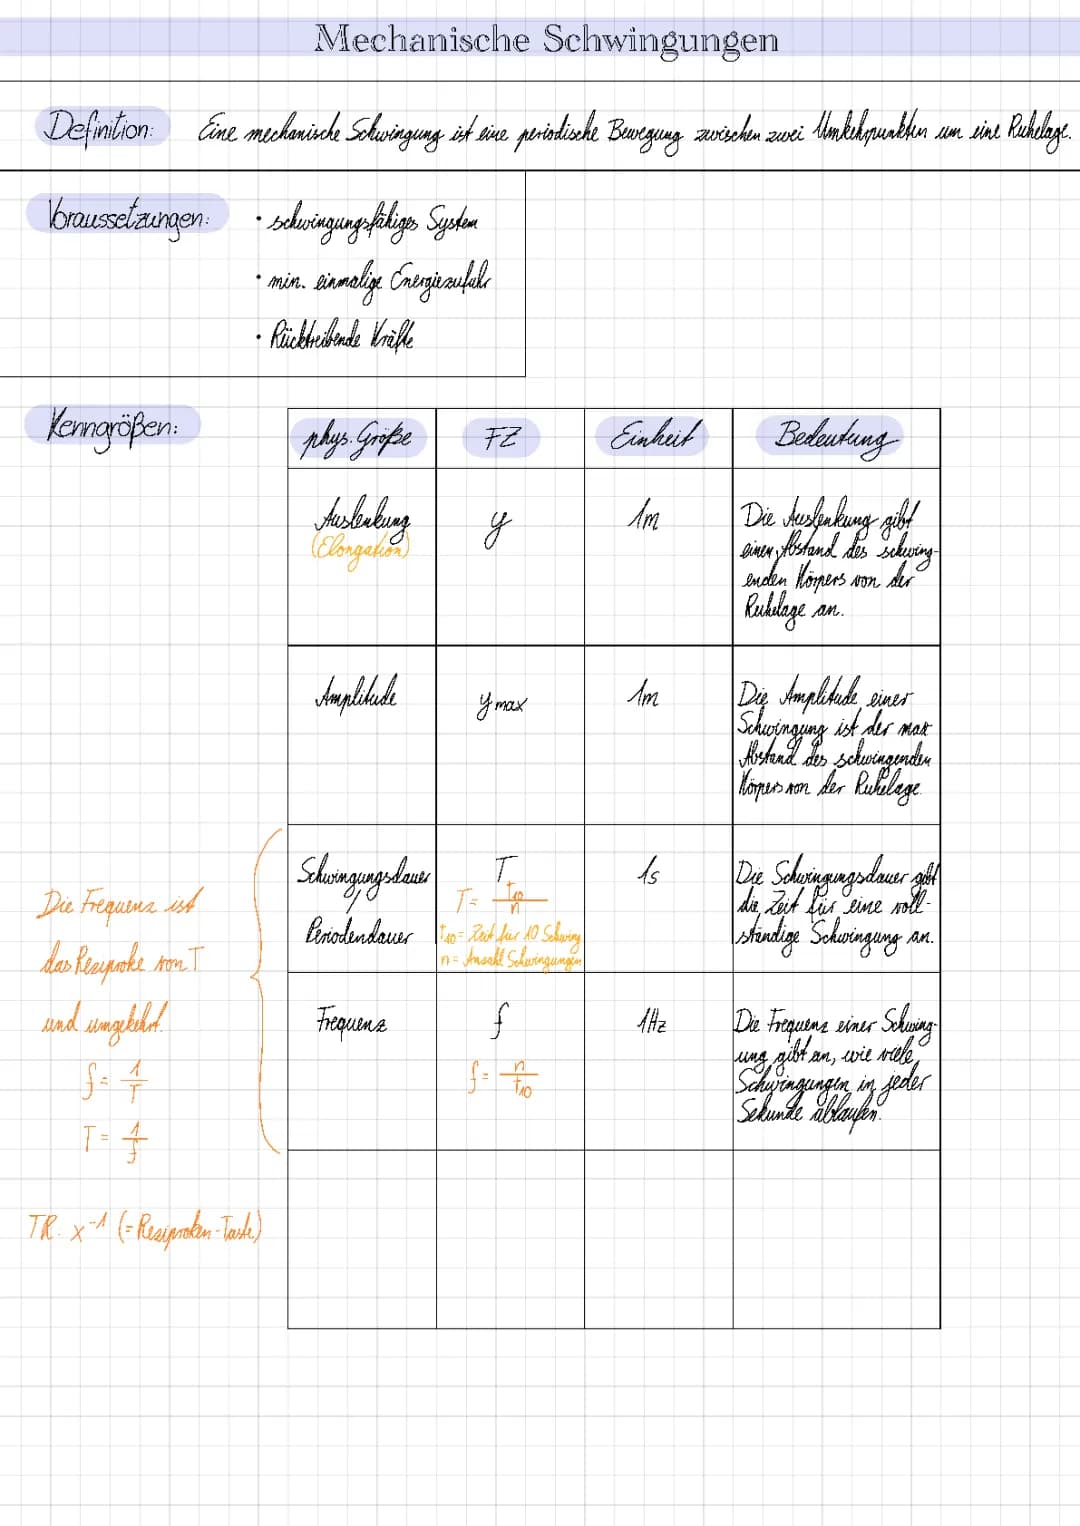 Mechanische Schwingungen
Definition: Eine mechanische Schwingung ist eine periodische Bewegung zwischen zwei Umkehrpunkten um eine Ruhelage.
Voraussetzungen:
• schwingungsfähiges System
• min. einmalige Energiezufuhr
• Rücktreibende Kräfte
Kenngrößen:
phys. Größe
FZ
Einheit
Bedeutung
Auslenkung
(Elongation)
y
1m
Die Auslenkung gibt
einen Abstand des schwing-
enden Körpers von der
Ruhelage an.
Amplitude
y max
1m
Die Amplitude einer
Schwingung ist der max
Abstand des schwingenden
Körpers von der Ruhelage.
Schwingungsdauer/
Periodendauer
T
T = t10/n
t10 = Zeit für 10 Schwing
n = Anzahl Schwingungen
1s
Die Schwingungsdauer gibt
die Zeit für eine voll-
ständige Schwingung an.
Frequenz
f
f = n/t10
1Hz
Die Frequenz einer Schwing-
ung gibt an, wie viele
Schwingungen in jeder
Sekunde ablaufen.
Die Frequenz ist
das Reziproke von T
und umgekehrt.
f = 1/T
T = 1/f
TR. x⁻¹ (= Reziproken-Taste)